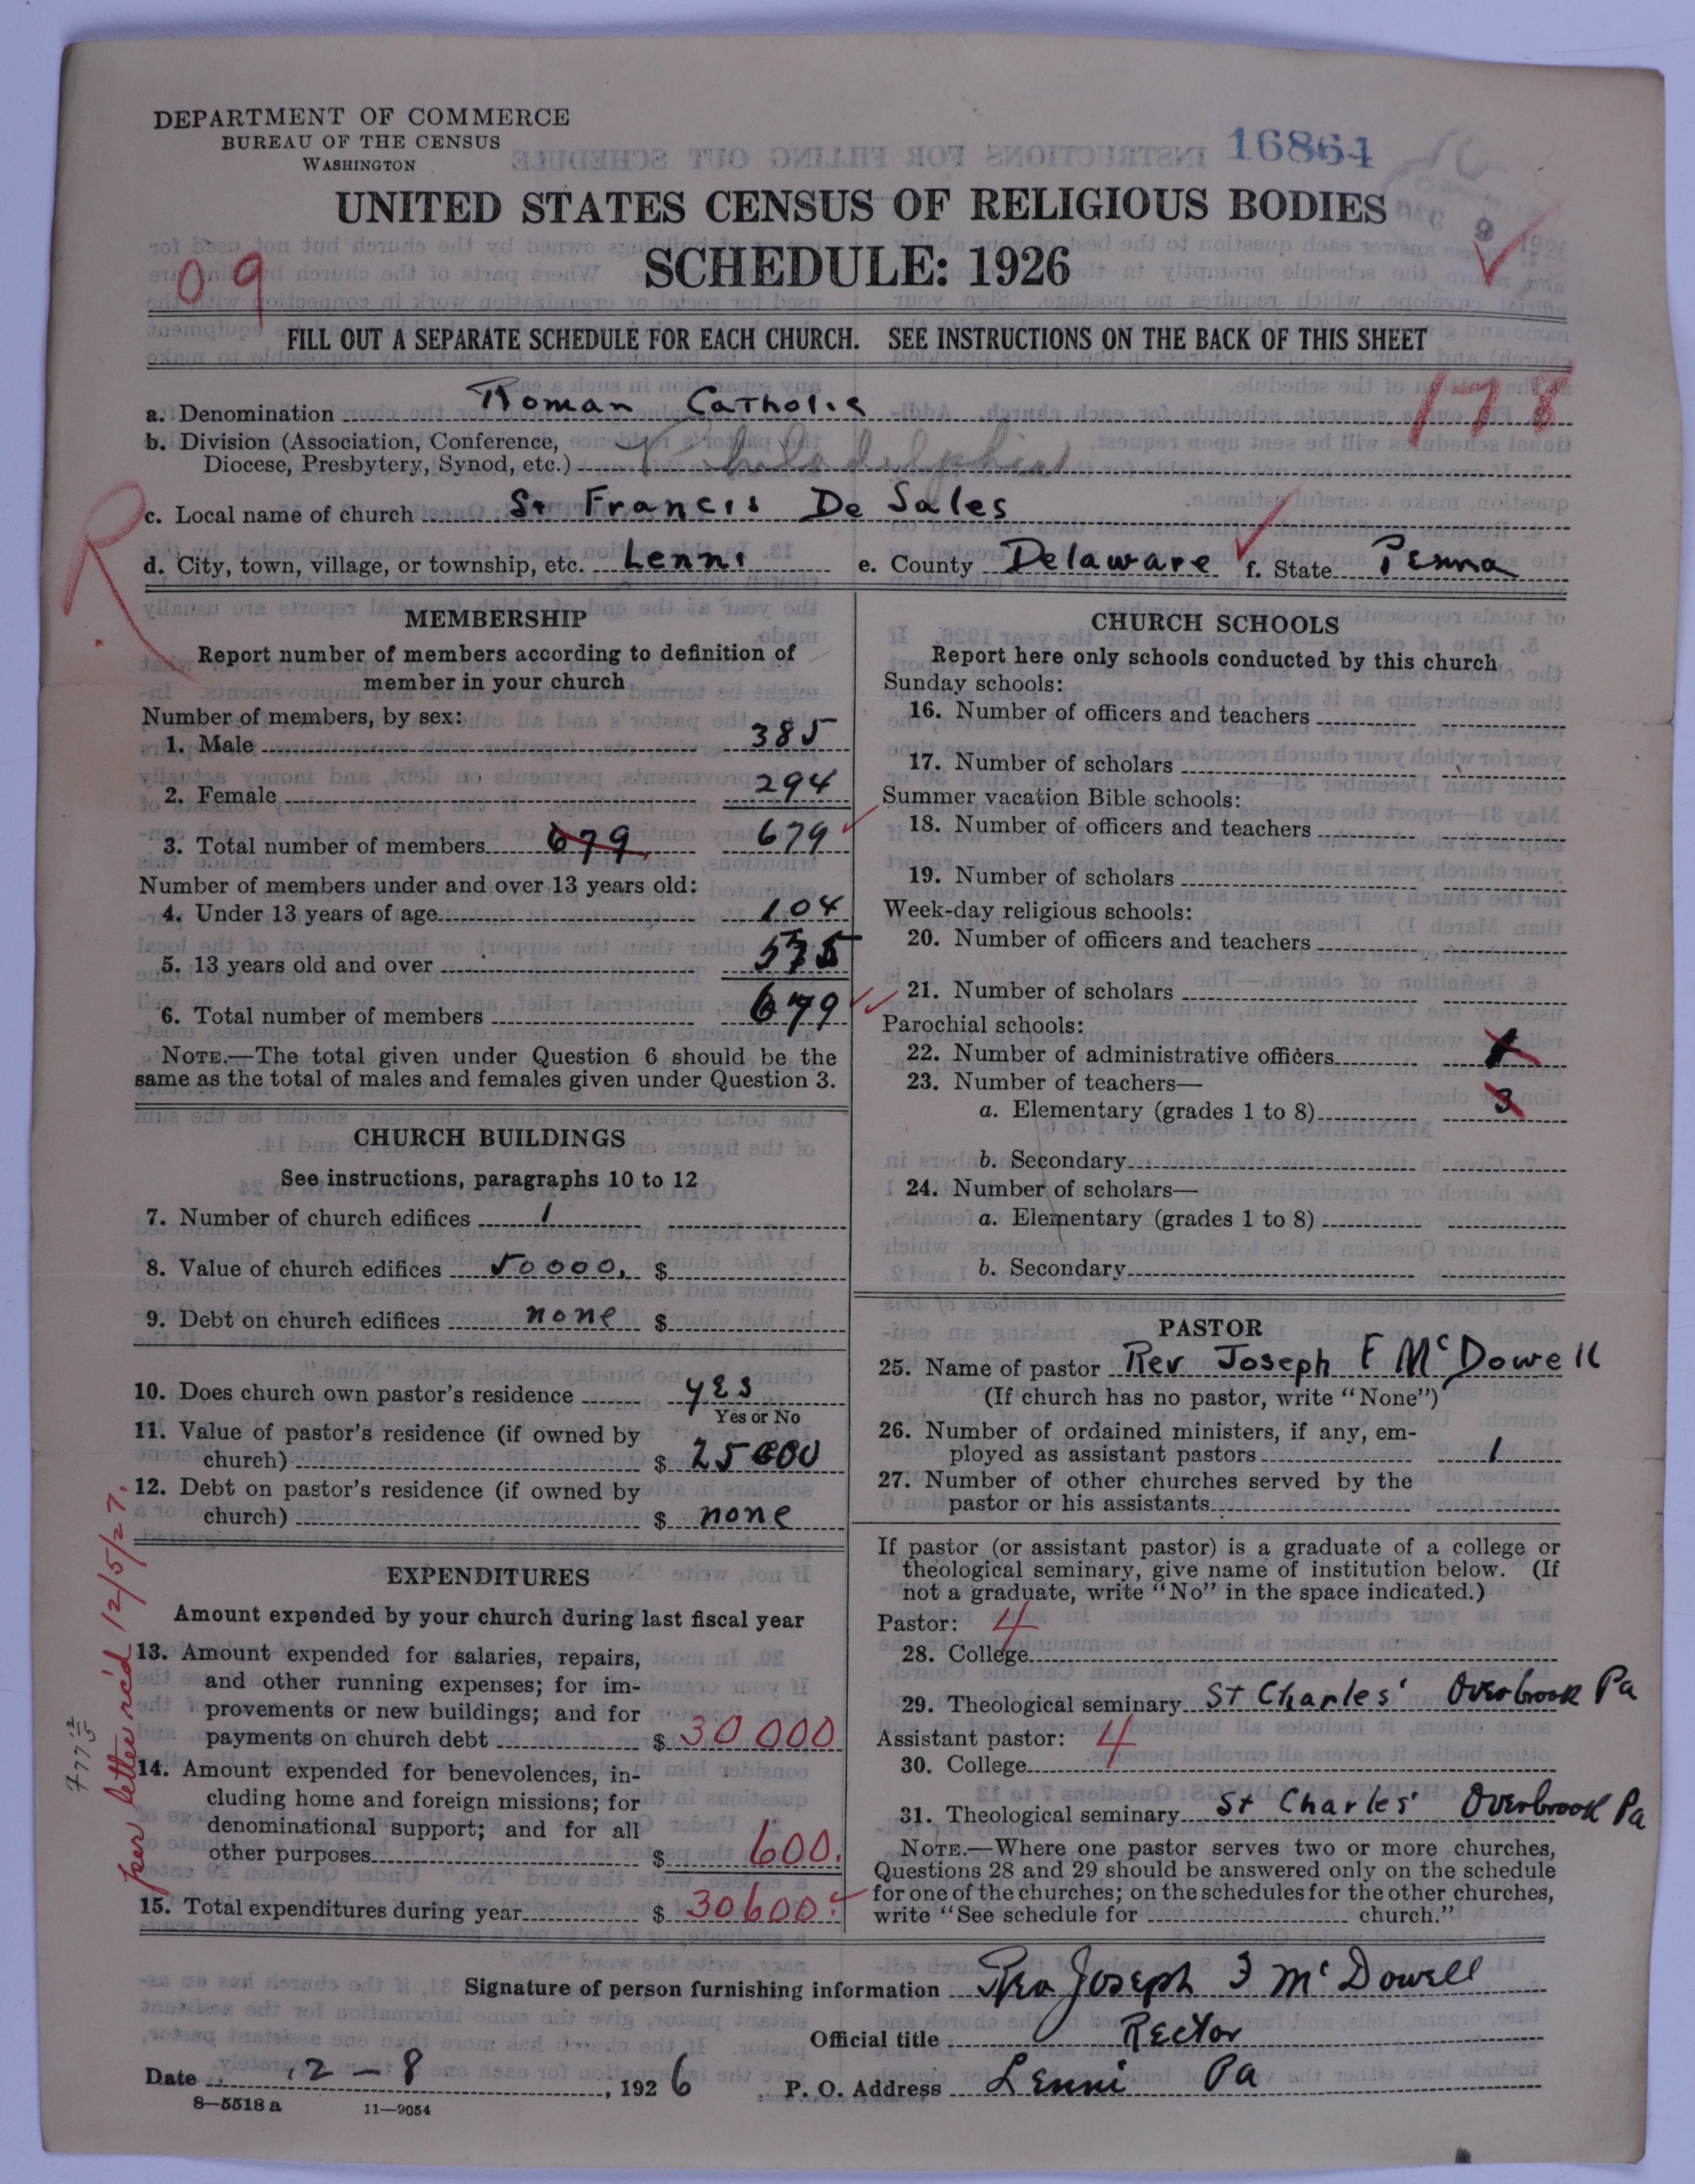 DEPARTMENT OF COMMERCE
BUREAU OF THE CENSUS
WASHINGTON
16864
UNITED STATES CENSUS OF RELIGIOUS BODIES
SCHEDULE: 1926
09
FILL OUT A SEPARATE SCHEDULE FOR EACH CHURCH. SEE INSTRUCTIONS ON THE BACK OF THIS SHEET
178
a. Denomination Roman Catholic
b. Division (Association, Conference,
Diocese, Presbytery, Synod, etc.) Philadelphia
c. Local name of church St Francis De Sales
d. City, town, village, or township, etc. Lenni e. County Delaware f. State Penna
R
MEMBERSHIP
Report number of members according to definition of
member in your church
Number of members, by sex:
1. Male 385
2. Female 294
3. Total number of members 679 679
Number of members under and over 13 years old:
4. Under 13 years of age 104
5. 13 years old and over 575
6. Total number of members 679
NOTE.—The total given under Question 6 should be the
same as the total of males and females given under Question 3.
CHURCH BUILDINGS
See instructions, paragraphs 10 to 12
7. Number of church edifices 1
8. Value of church edifices 50000. $
9. Debt on church edifices none $
10. Does church own pastor's residence yes
Yes or No
11. Value of pastor's residence (if owned by
church) $ 25000
12. Debt on pastor's residence (if owned by
church) $ none
EXPENDITURES
Amount expended by your church during last fiscal year
13. Amount expended for salaries, repairs,
and other running expenses; for im-
provements or new buildings; and for
payments on church debt $ 30000
14. Amount expended for benevolences, in-
cluding home and foreign missions; for
denominational support; and for all
other purposes $ 600.
15. Total expenditures during year $ 30600.
per letter rc'd 12/5/27.
CHURCH SCHOOLS
Report here only schools conducted by this church
Sunday schools:
16. Number of officers and teachers
17. Number of scholars
Summer vacation Bible schools:
18. Number of officers and teachers
19. Number of scholars
Week-day religious schools:
20. Number of officers and teachers
21. Number of scholars
Parochial schools:
22. Number of administrative officers 1
23. Number of teachers—
a. Elementary (grades 1 to 8) 3
b. Secondary
24. Number of scholars—
a. Elementary (grades 1 to 8)
b. Secondary
PASTOR
25. Name of pastor Rev Joseph F McDowell
(If church has no pastor, write "None")
26. Number of ordained ministers, if any, em-
ployed as assistant pastors 1
27. Number of other churches served by the
pastor or his assistants
If pastor (or assistant pastor) is a graduate of a college or
theological seminary, give name of institution below. (If
not a graduate, write "No" in the space indicated.)
Pastor: 4
28. College
29. Theological seminary St Charles' Overbrook Pa
Assistant pastor: 4
30. College
31. Theological seminary St Charles' Overbrook Pa
NOTE.—Where one pastor serves two or more churches,
Questions 28 and 29 should be answered only on the schedule
for one of the churches; on the schedules for the other churches,
write "See schedule for church."
Signature of person furnishing information Rev Joseph F McDowell
Official title Rector
Date 12-8, 1926 P. O. Address Lenni Pa
8-5518 a 11-9054